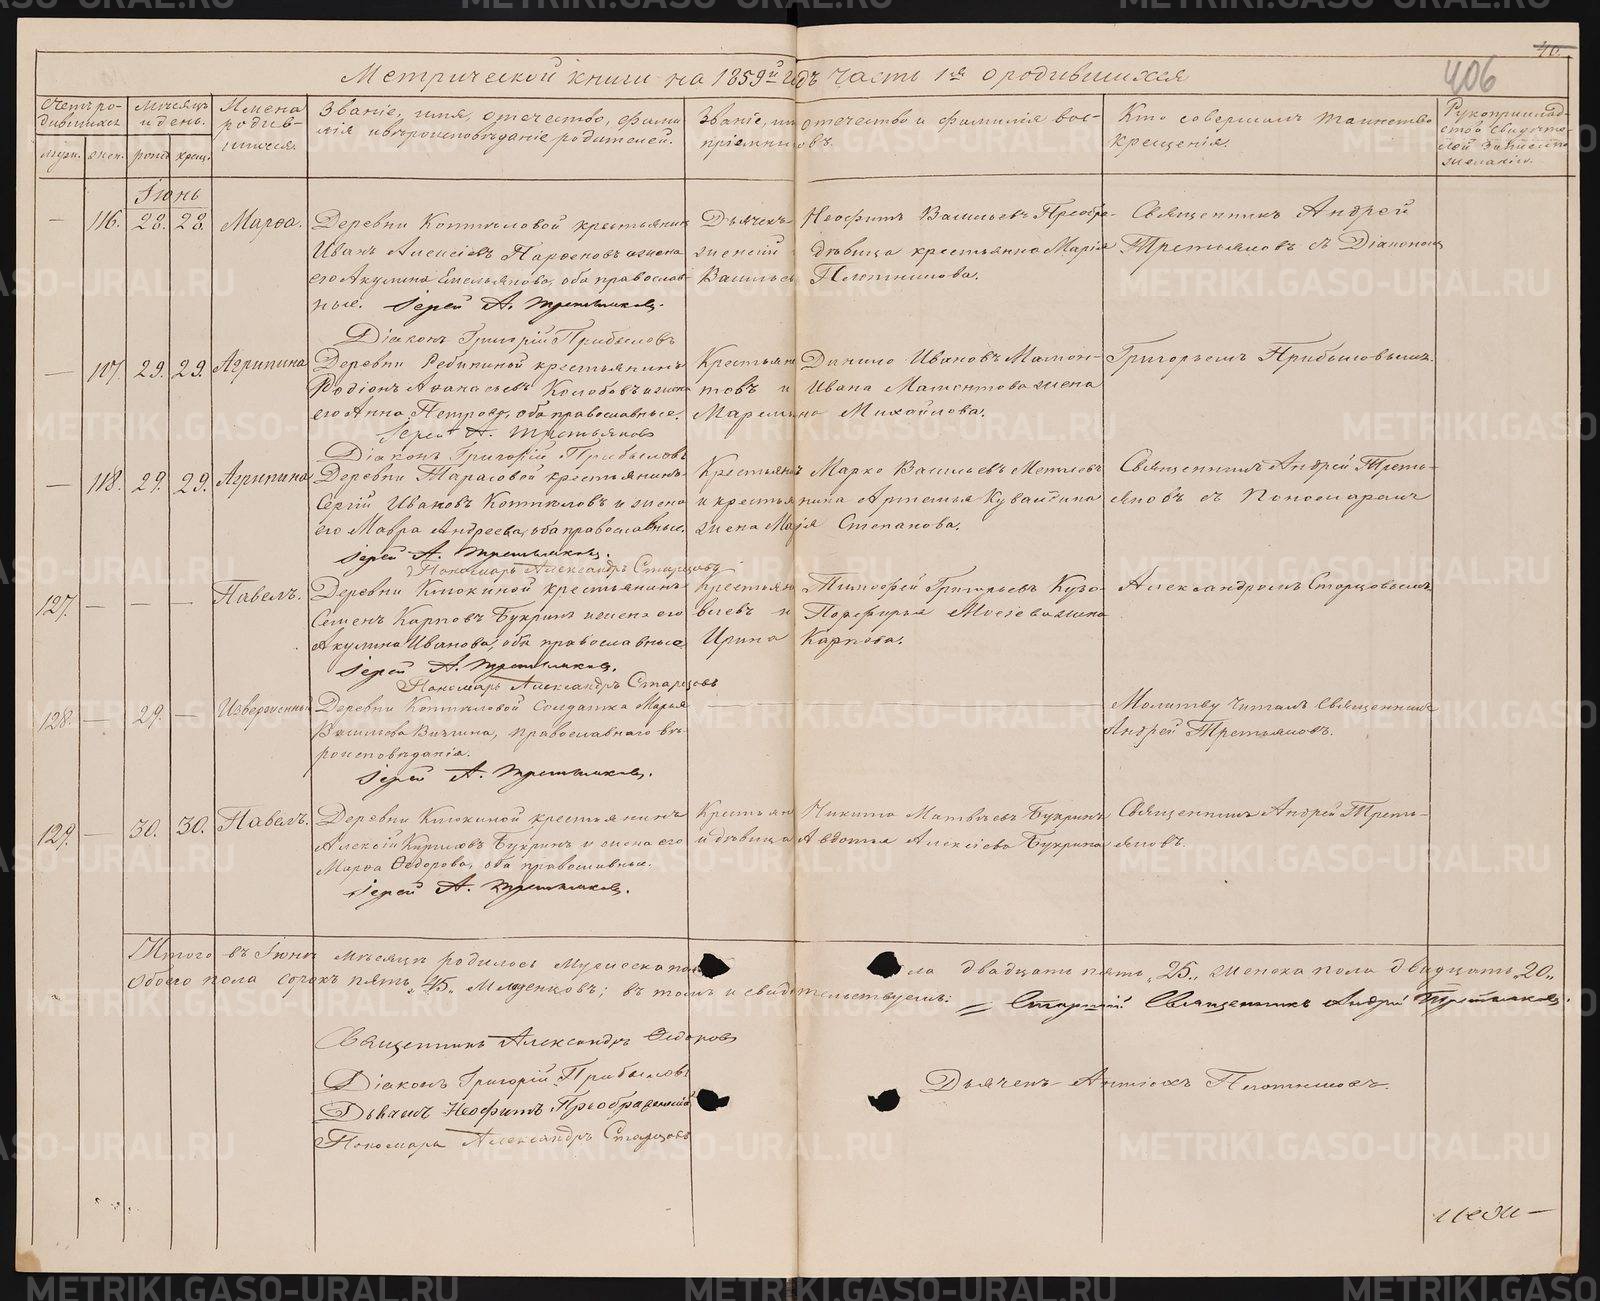 40.
406
Метрической книги на 1859й годъ часть 1ая о родившихся
Счетъ ро-
дившихся
муж. жен.
Мѣсяцъ
и день.
рожд. крещ.
Имена
родив-
шихся.
Званіе, имя, отечество, фами
лія и вѣроисповѣданіе родителей.
Званіе, имя отечество и фамилія вос-
пріемниковъ.
Кто совершалъ таинство
крещенія.
Рукоприклад-
ство свидѣте-
лей записи по
желанію.
Іюнь
— 116. 28. 28. Марѳа.
Деревни Котиловой крестьянинъ
Иванъ Алексіевъ Парѳеновъ и жена
его Акулина Емельянова, оба православ-
ные. Іерей А. Третьяковъ.
Діаконъ Григорій Прибыловъ
Дьячекъ Неофитъ Васильевъ Преобра-
женскій дѣвица крестьянка Марія
Васильев Плотникова.
Священникъ Андрей
Третьяковъ съ Діакономъ
— 117. 29. 29. Агрипина
Деревни Ребиниой крестьянинъ
Родіонъ Аѳанасьевъ Колобовъ и жена
его Анна Петрова, оба православные.
Іерей А. Третьяковъ
Діаконъ Григорій Прибыловъ
Крестьян Данило Ивановъ Мамон-
товъ и Ивана Мамонтова жена
Маремьяна Михайлова.
Григорьемъ Прибыловымъ.
— 118. 29. 29. Агрипина
Деревни Тарасовой крестьянинъ
Сергій Ивановъ Котиловъ и жена
его Мавра Андреева, оба православные.
Іерей А. Третьяковъ.
Пономарь Александръ Старцовъ
Крестьянъ Марко Васильевъ Метелевъ
и крестьянина Артемья Кувалдина
жена Марія Степанова.
Священникъ Андрей Треть-
яковъ съ Пономаремъ
127. — — — Павелъ.
Деревни Клюкиной крестьянинъ
Семенъ Карповъ Букринъ и жена его
Акулина Иванова, оба православные
Іерей А. Третьяковъ.
Пономарь Александръ Старцовъ
крестьян Тимофей Григорьевъ Кузо-
влевъ и Порфирья Моісева жена
Ирина Карпова.
Александромъ Старцовымъ.
128. — 29. — Изверженный
Деревни Котиловой Солдатка Марья
Васильева Вяткина, православнаго вѣ-
роисповѣданія.
Іерей А. Третьяковъ.
Молитву читалъ Священникъ
Андрей Третьяковъ.
129. — 30. 30. Павелъ.
Деревни Клюкиной крестьянинъ
Алексій Кириловъ Букринъ и жена его
Марѳа Ѳедорова, оба православные.
Іерей А. Третьяковъ.
Крестьян Никита Матвѣевъ Букринъ
и дѣвица Авдотья Алексіева Букрина
Священникъ Андрей Треть-
яковъ.
Итого въ Іюнѣ мѣсяцѣ родилось мужеска пола двадцать пять „25„ женска пола двадцать „20„
Обоего пола сорокъ пять „45„ Младенцовъ; въ томъ и свидѣтельствуемъ:
Старшій Священникъ Андрей Третьяковъ.
Священникъ Александръ Ѳедоровъ
Діаконъ Григорій Прибыловъ
Дьячекъ Неофитъ Преображенскій
Пономарь Александръ Старцовъ
Дьячекъ Антіохъ Плотниковъ.
METRIKI.GASO-URAL.RU